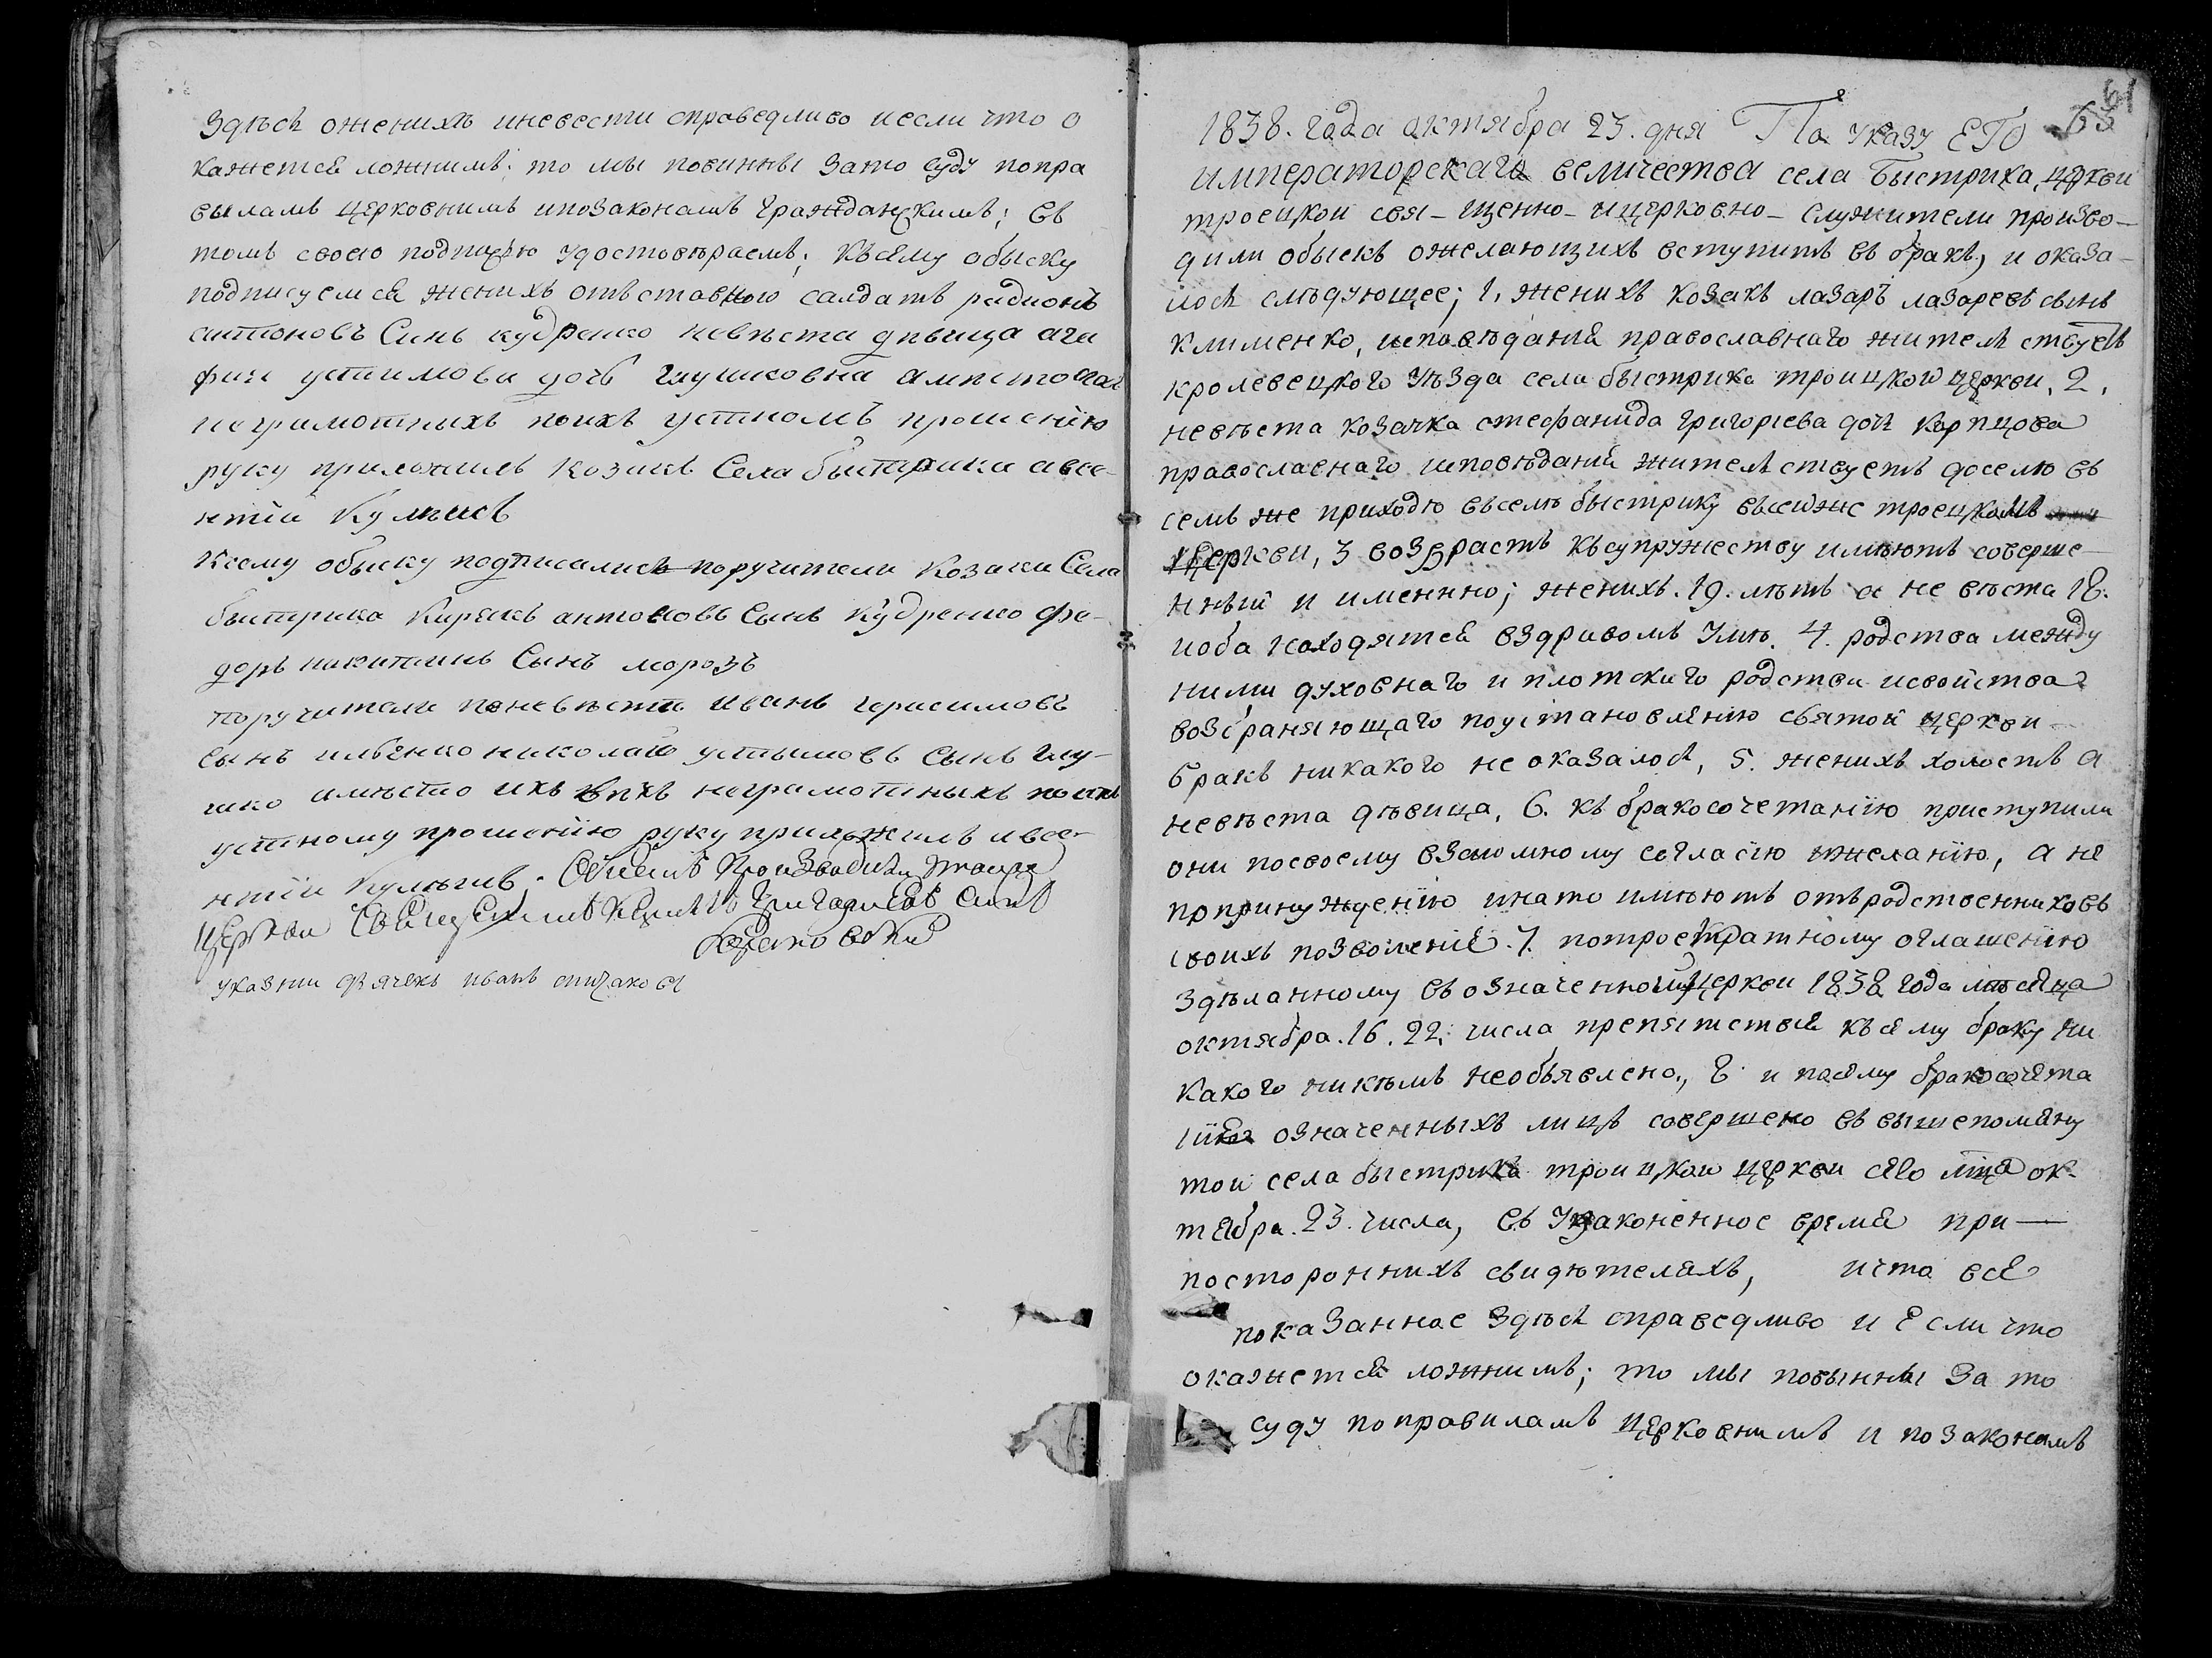 здѣсь оженихѣ иневести справедливо иесли что о
кажется ложнимъ; то мы повинны зато суду попра
виламъ церковнимъ ипозаконамъ гражданскимъ; въ
томъ своею подписью удостовѣраемъ; Къ сему обыску
подписуемся женихъ отъставною салдатъ радионъ
антоновъ Синъ кудренко невѣста дѣвица ага
фия устимова дочь глушковна
неграмотныхъ поихъ устномъ прошенїю
руку приложилъ козакъ Села бистрика авсе-
нтїи Кулишъ
Ксему обыску подписались поручители Козаки Села
бистрика Кирякъ антоновъ Сынъ Кудренко фе-
доръ никитинъ Сынъ морозъ
поручители поневѣсти иванъ герасимовъ
Сынъ ильенко николаю устымовъ Сынъ глу-
шко амѣсто ихъ неграмотныхъ поихъ
устному прошенїю руку приложилъ авсе-
нтїи Кулишъ. Обыскъ Производилъ тоиже
церкви Священникъ Григориевъ Синъ
указнии дячекъ иванъ
61
63
1838. года октября 23. дня По указу ЕГО
императорскаго величества села Быстрика, церкви
троецкои свя-щенно-ицерковно-служители произво-
дили обыскъ ожелающихъ вступитъ въ бракъ, и оказа-
лось слѣдующее; 1, женихъ козакъ лазаръ лазаревъ сынъ
клименко, исповѣданія православнаго жительствуетъ
кролевецкого уѣзда села быстрика троицкой церкви, 2,
невѣста козачка стефанида григорiева дочь карпцова
православнаго исповѣданія жительствуетъ доселю въ
семъ же приходю въселѣ быстрику въсейже троецкомъ
церкви, 3 возврастъ къ супружеству имѣютъ соверше-
нный и именно; женихъ. 19. лѣтъ а не вѣста 18.
иоба находятся вздравомъ умѣ. 4. родства между
ними духовнаго и плотскаго родства исвойства
возбраняющаго поустановлѣнию святой церкви
бракъ никакого не оказалось, 5. женихъ холостъ а
невѣста дѣвица, 6. къ бракосочетанїю приступили
они посвоему взаимному согласїю ижеланїю, а не
попринужденїю инато имѣютъ отъродственниковъ
своихъ позволенїе. 7. потроекратному оглашенїю
здѣланному въ означенной церкви 1838 года мѣсяца
октября. 16. 22. числа препятствия къ сему браку ни
какого никѣмъ необъявлено., 8. и посему бракосочета
нїе означенныхъ лицъ совершено въ вышепомяну
той села быстрика троицкои церкви сего мца ок-
тября. 23. числа, въ узаконенное время при—
постороннихъ свидѣтеляхъ, ичто все
показанное здѣсь справедливо и если что
окажется ложнимъ; то мы повынны за то
суду поправиламъ церковнимъ и позаконамъ